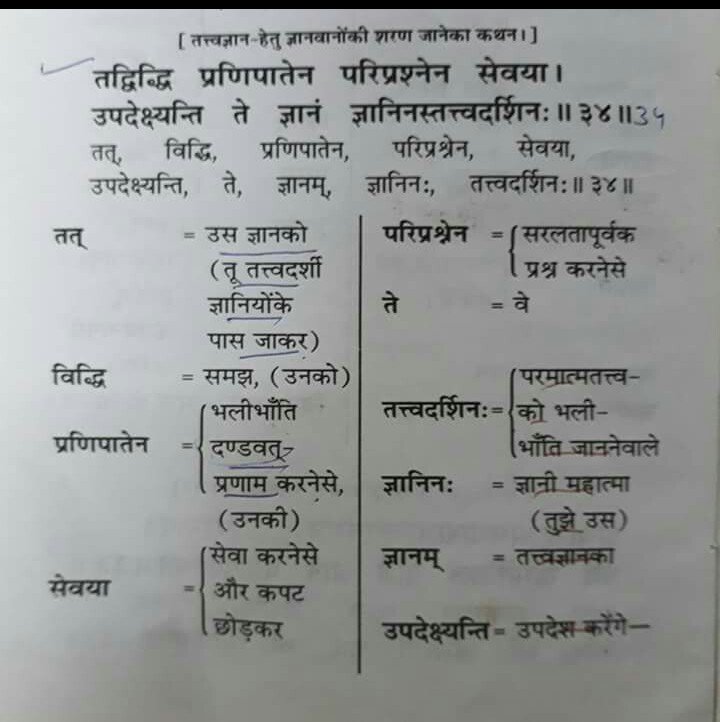 [ तत्त्वज्ञान-हेतु ज्ञानवानोंकी शरण जानेका कथन। ]
तद्विद्धि प्रणिपातेन परिप्रश्नेन सेवया।
उपदेक्ष्यन्ति ते ज्ञानं ज्ञानिनस्तत्त्वदर्शिनः॥ ३४॥ 34
तत्, विद्धि, प्रणिपातेन, परिप्रश्नेन, सेवया,
उपदेक्ष्यन्ति, ते, ज्ञानम्, ज्ञानिनः, तत्त्वदर्शिनः॥ ३४॥
तत् = उस ज्ञानको
(तू तत्त्वदर्शी
ज्ञानियोंके
पास जाकर)
विद्धि = समझ, (उनको)
भलीभाँति
प्रणिपातेन = दण्डवत्-
प्रणाम करनेसे,
(उनकी)
सेवा करनेसे
सेवया = और कपट
छोड़कर
परिप्रश्नेन = सरलतापूर्वक
प्रश्न करनेसे
ते = वे
परमात्मतत्त्व-
तत्त्वदर्शिनः= को भली-
भाँति जाननेवाले
ज्ञानिनः = ज्ञानी महात्मा
(तुझे उस)
ज्ञानम् = तत्त्वज्ञानका
उपदेक्ष्यन्ति= उपदेश करेंगे—